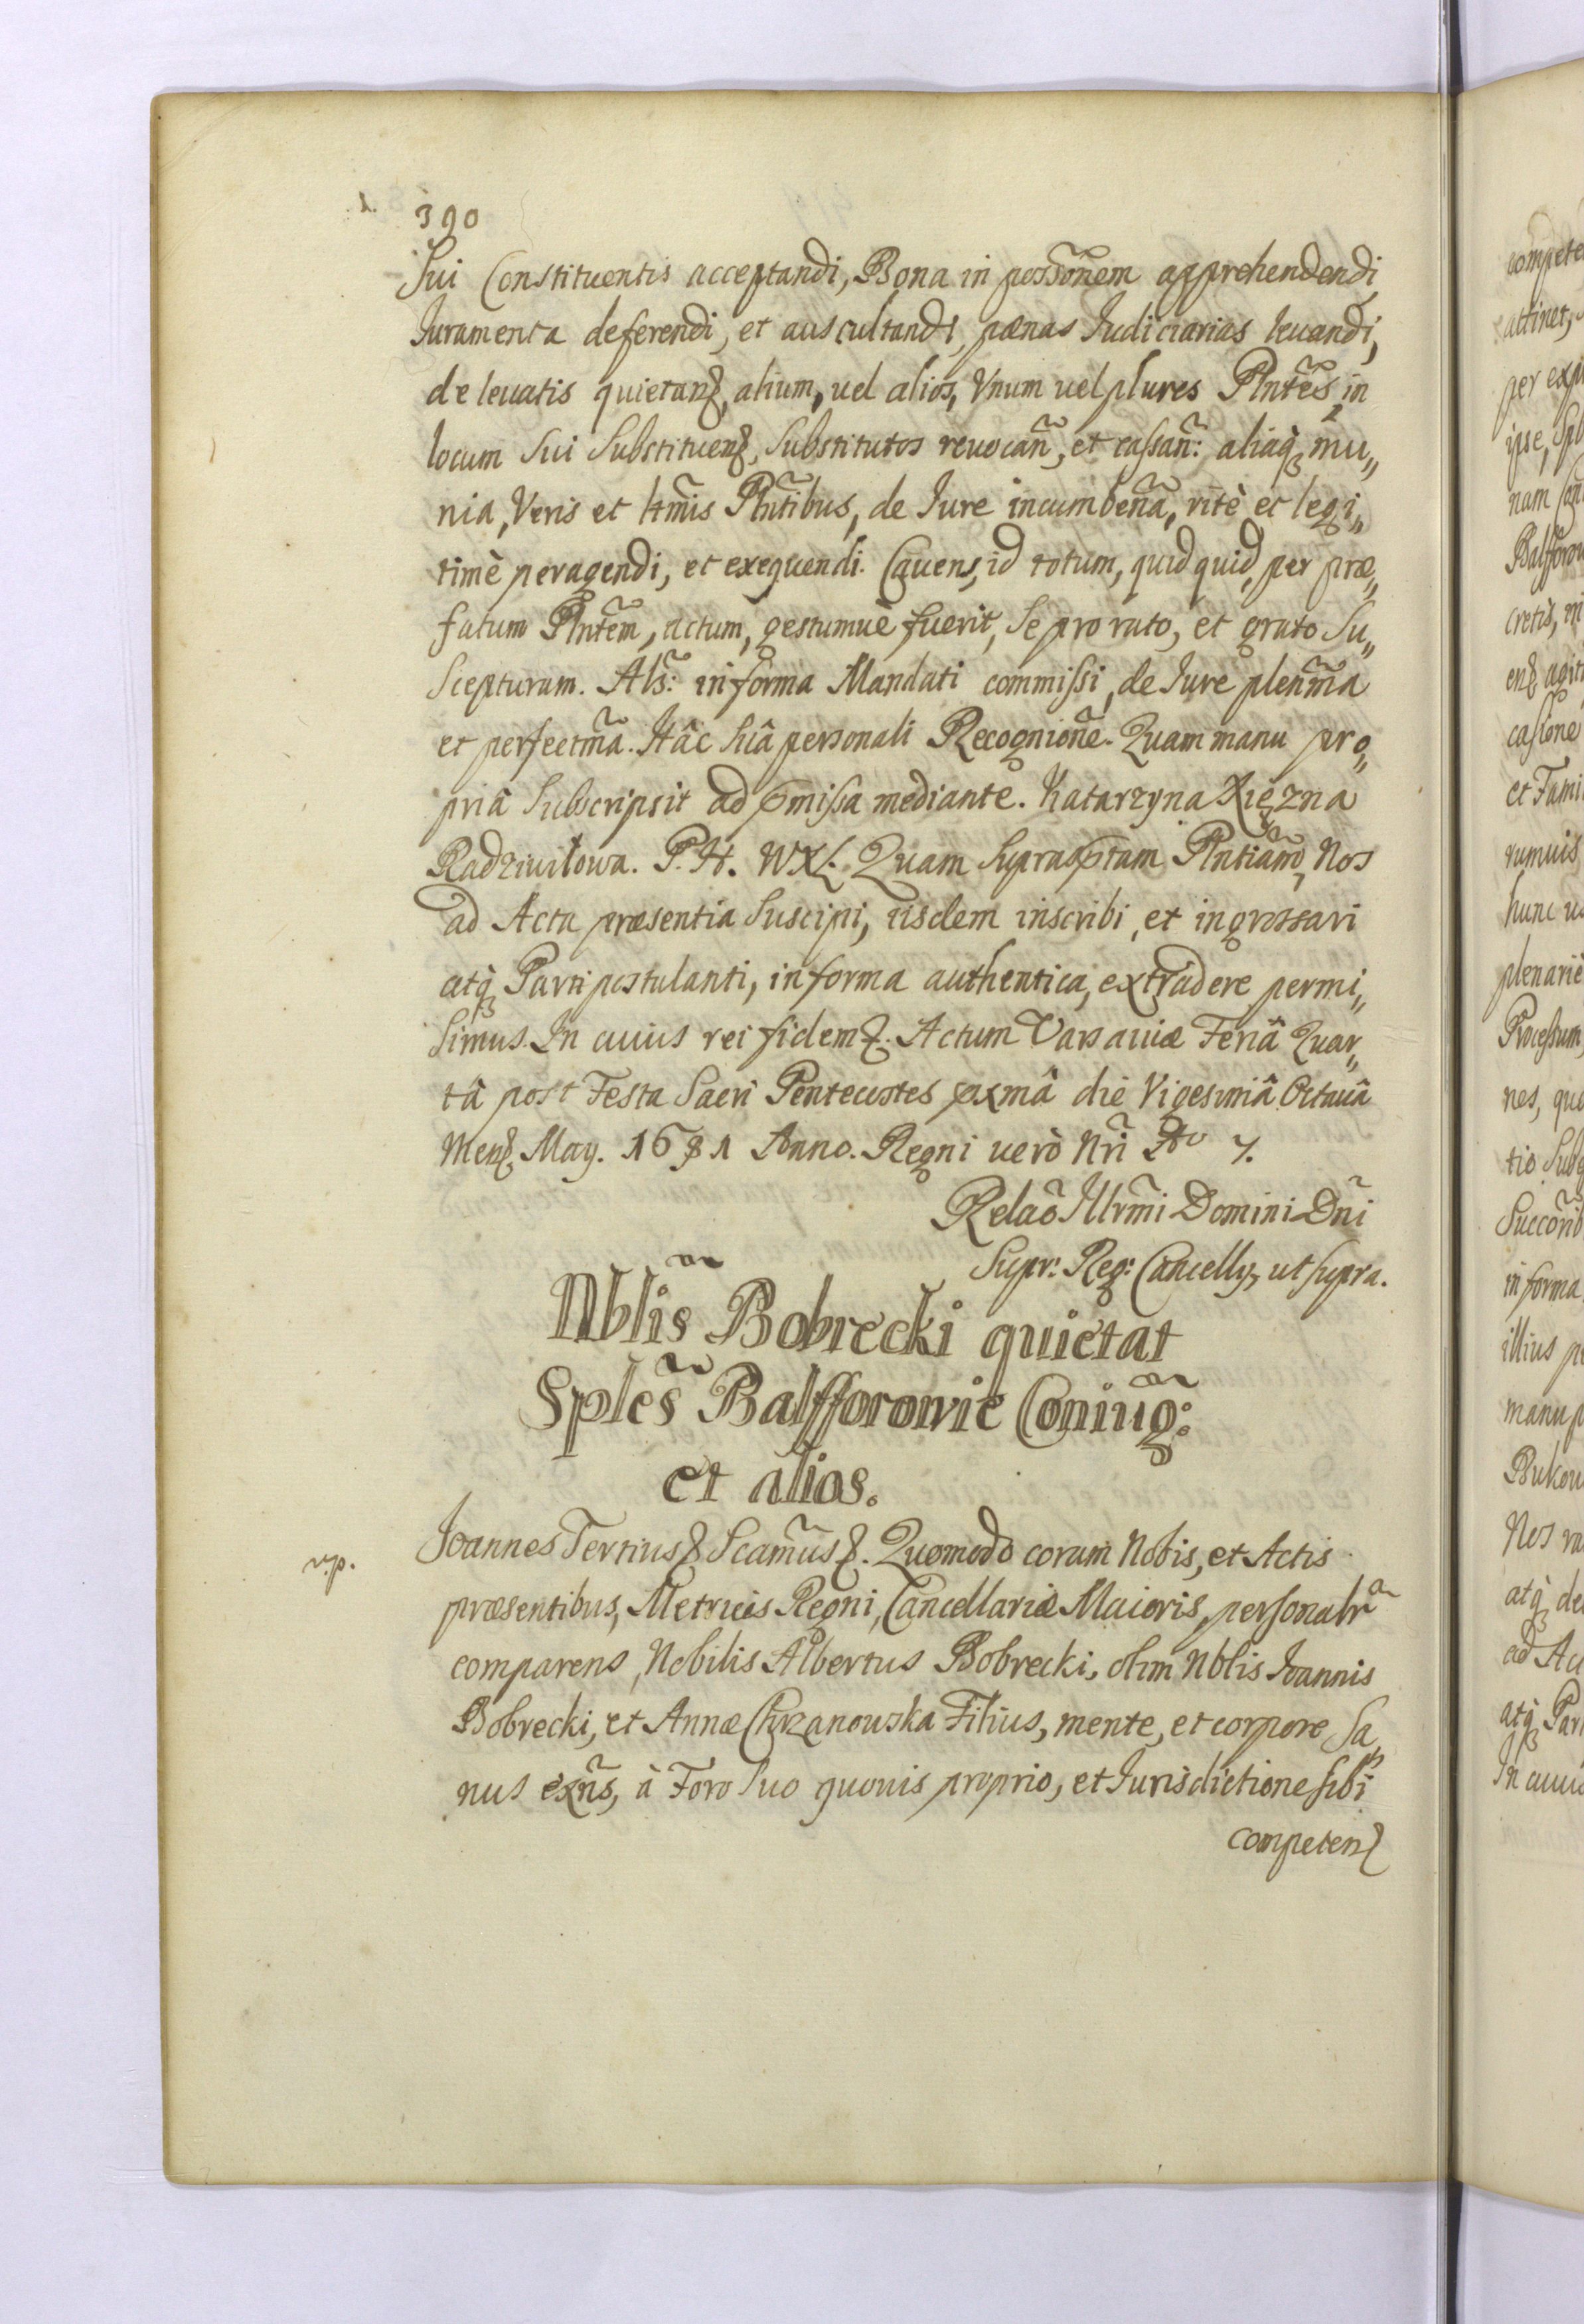 390
Sui Constituentis acceptandi, Bona in possõnem apprehendendi
Iuramenta deferendi, et auscultandi, pænas Iudiciarias levandi,
de leuatis quietanꝫ, alium, uel alios, Vnum uel plures Plnt̃es in
locum Sui Substituenꝫ, Substitutos reuocañ, et cassañ: aliaqꝫ mu„
nia, Veris et ltm̃is Plñtibus, de Iure incumbeña, ritè et legi„
timè peragendi, et exequendi. Cauens, id totum, quidquid, per præ„
fatum Plnt̃em, actum, gestumuè fuerit, Se pro rato, et grato Su„
Scepturum. Als̃: in forma Mandati commissi, de Iure plenm̃a
et perfectm̃a. Hâc Suâ personali Recognioñe. Quam manu pro„
priâ Subscripsit ad pmissa mediante. Katarzyna Xiężna
Radziwiłowa. P. H. WXL. Quam Suprasptam Plntiam̃, Nos
ad Acta præsentia Suscipi, iisdem inscribi, et ingrossari
atqꝫ Parti postulanti, in forma authentica, extradere permi„
Simus. In cuius rei fidem ꝫ. Actum Varsauiæ Feriâ Quar„
tâ post Festa Sacri Pentecostes pxmâ die Vigesimâ Octauâ
Menꝫ May. 1681 Anno. Regni uerò Nr̃i Aº 7.
Relaõ Illrm̃i Domini Dñi
Supr: Reg: Cancellỹ, ut supra.
Nblis̃ Bobrecki quietat
Sples̃ Balfforowie Coniug̃:
et alios.
n.p.
Joannes Tertius ꝫ Scam̃us ꝫ. Quomodo coram Nobis, et Actis
præsentibus, Metrices Regni, Cancellariæ Maioris, personalr̃
comparens, Nobilis Albertus Bobrecki, olim Nblis Joannis
Bobrecki, et Annæ Chrzanowska Filius, mente, et corpore Sa„
nus exñs, à Foro Suo quouis proprio, et Iurisdictione sibi
competenꝫ